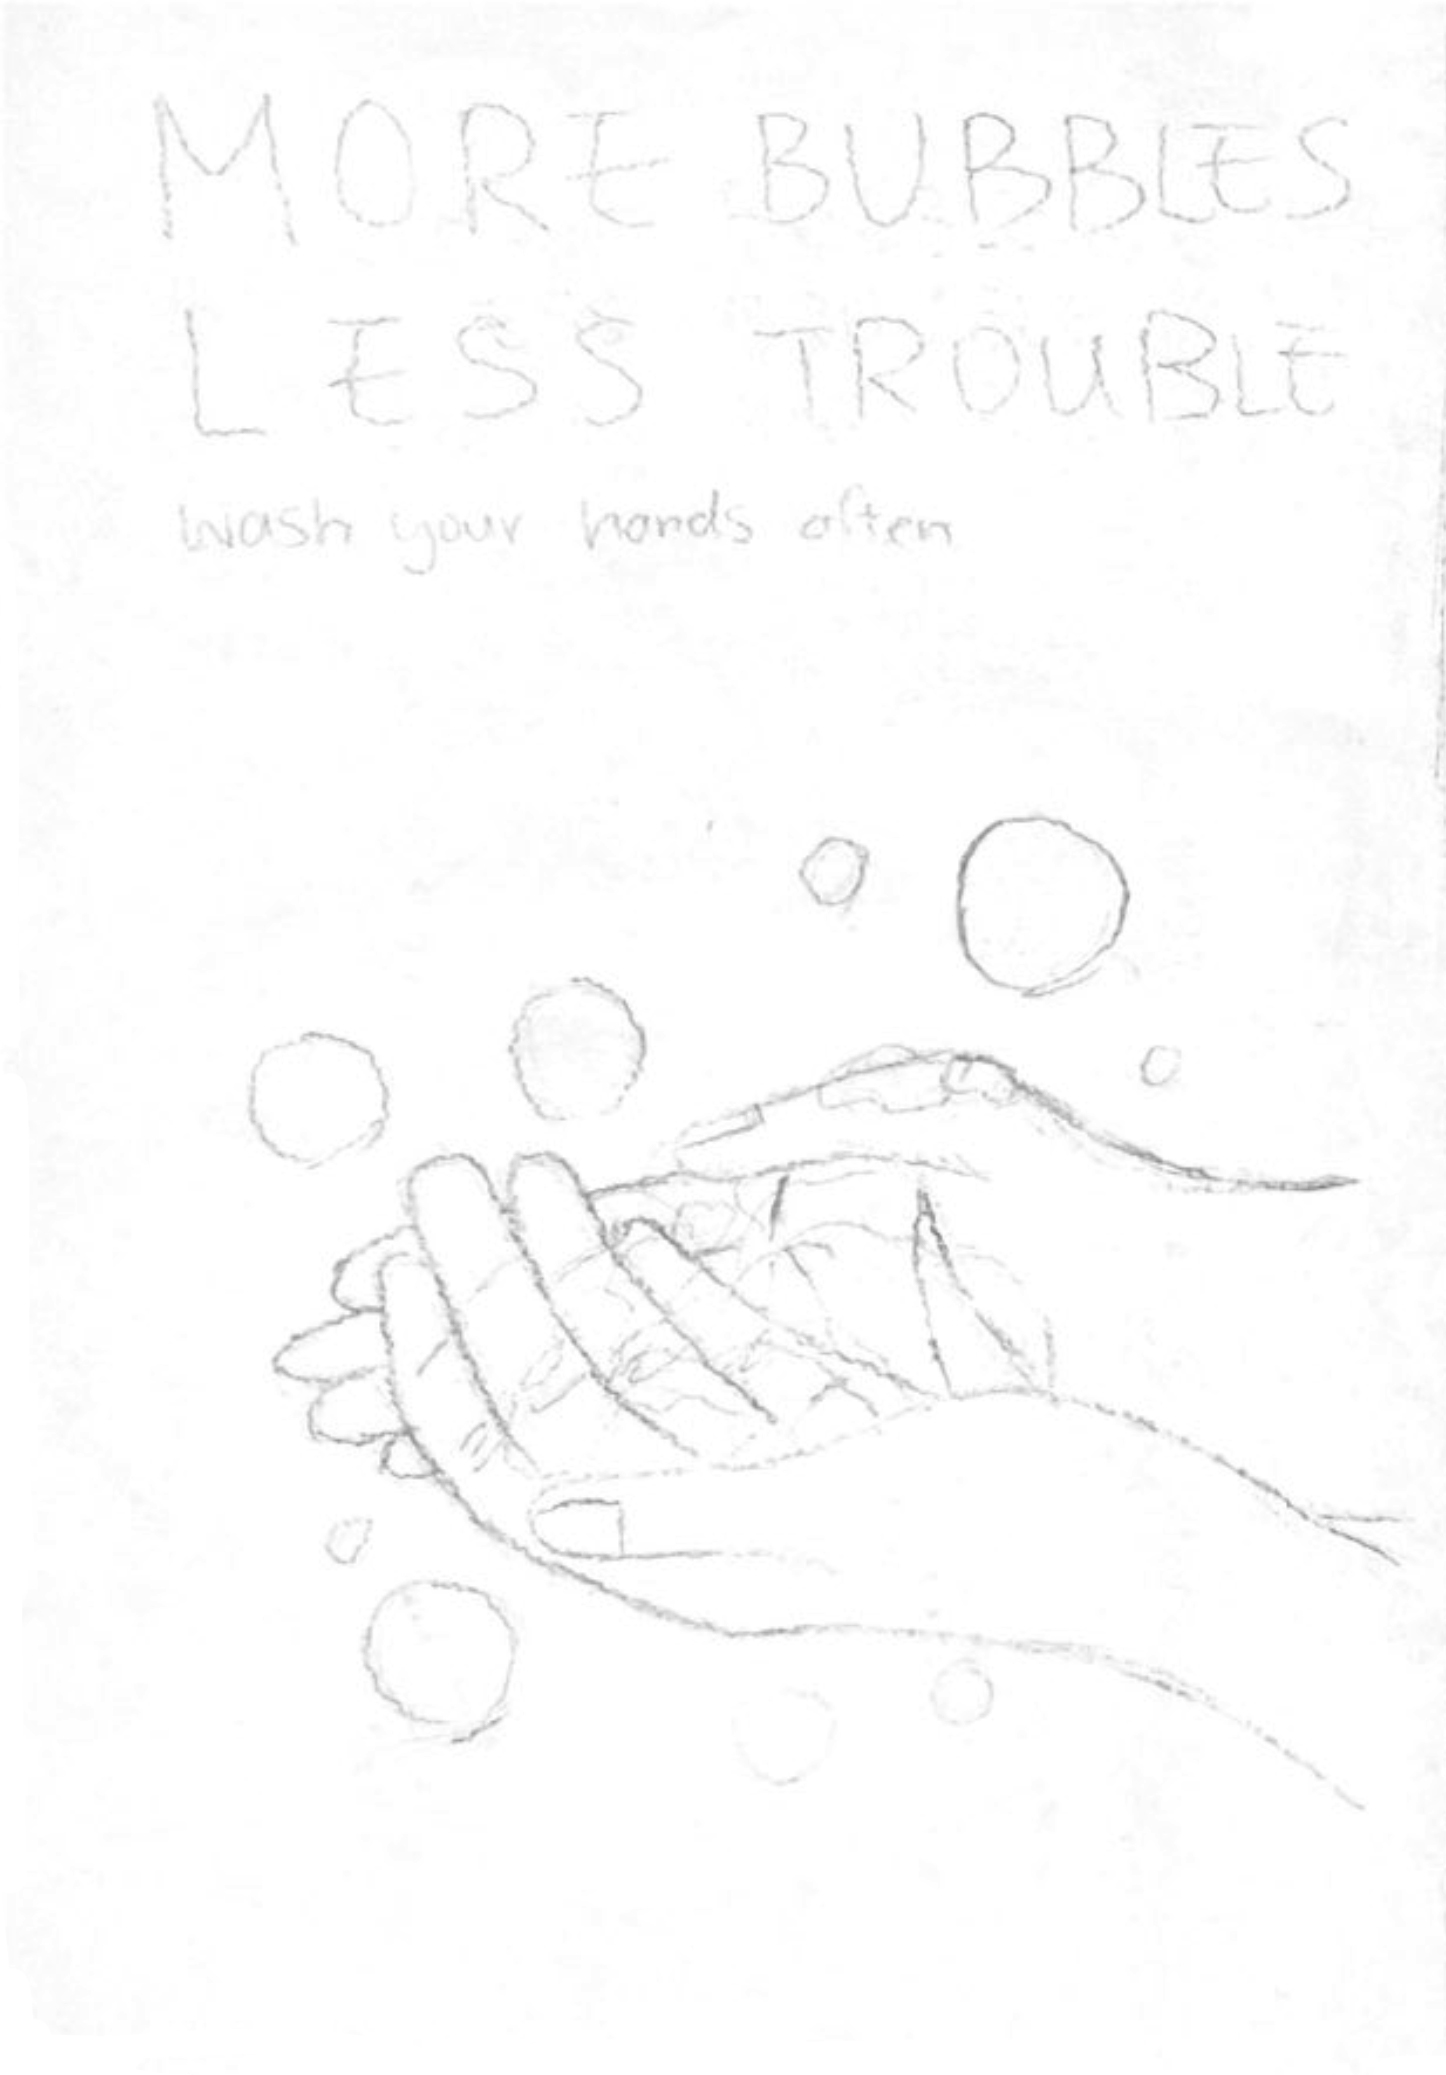 MORE BUBBLES
LESS TROUBLE
wash your hands often